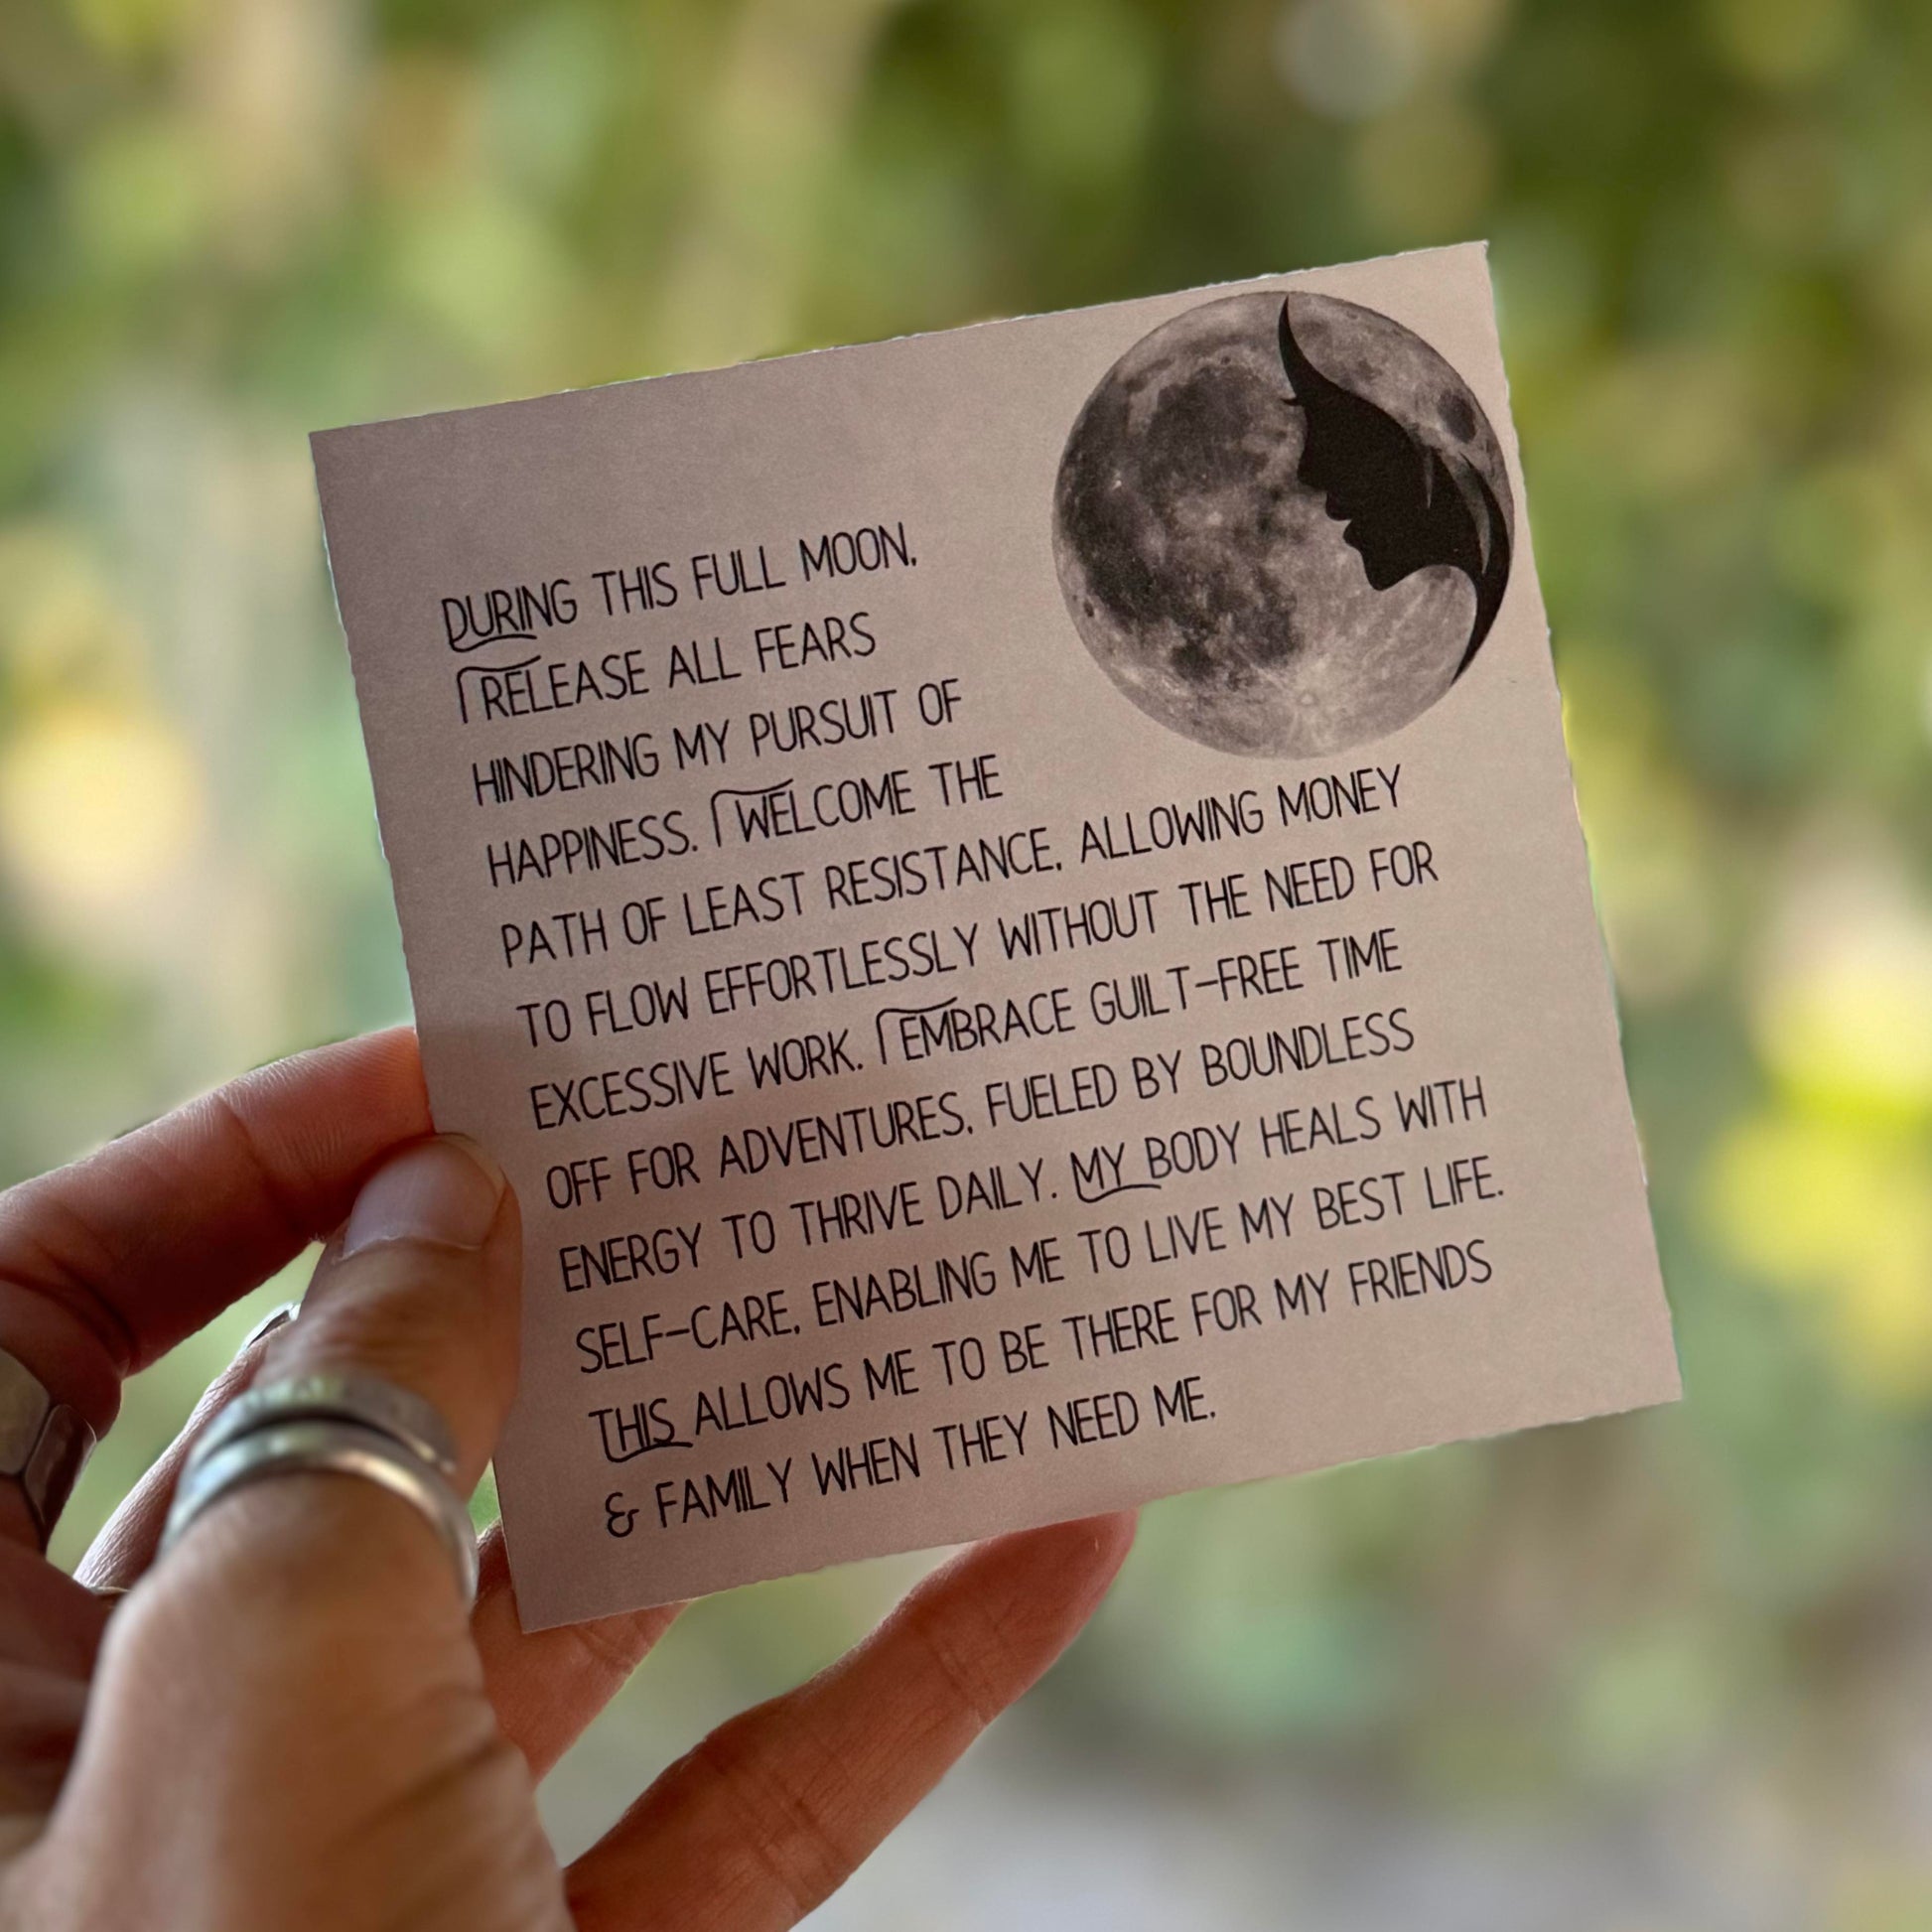 DURING THIS FULL MOON,
I RELEASE ALL FEARS
HINDERING MY PURSUIT OF
HAPPINESS. I WELCOME THE
PATH OF LEAST RESISTANCE, ALLOWING MONEY
TO FLOW EFFORTLESSLY WITHOUT THE NEED FOR
EXCESSIVE WORK. I EMBRACE GUILT-FREE TIME
OFF FOR ADVENTURES, FUELED BY BOUNDLESS
ENERGY TO THRIVE DAILY. MY BODY HEALS WITH
SELF-CARE, ENABLING ME TO LIVE MY BEST LIFE.
THIS ALLOWS ME TO BE THERE FOR MY FRIENDS
& FAMILY WHEN THEY NEED ME.